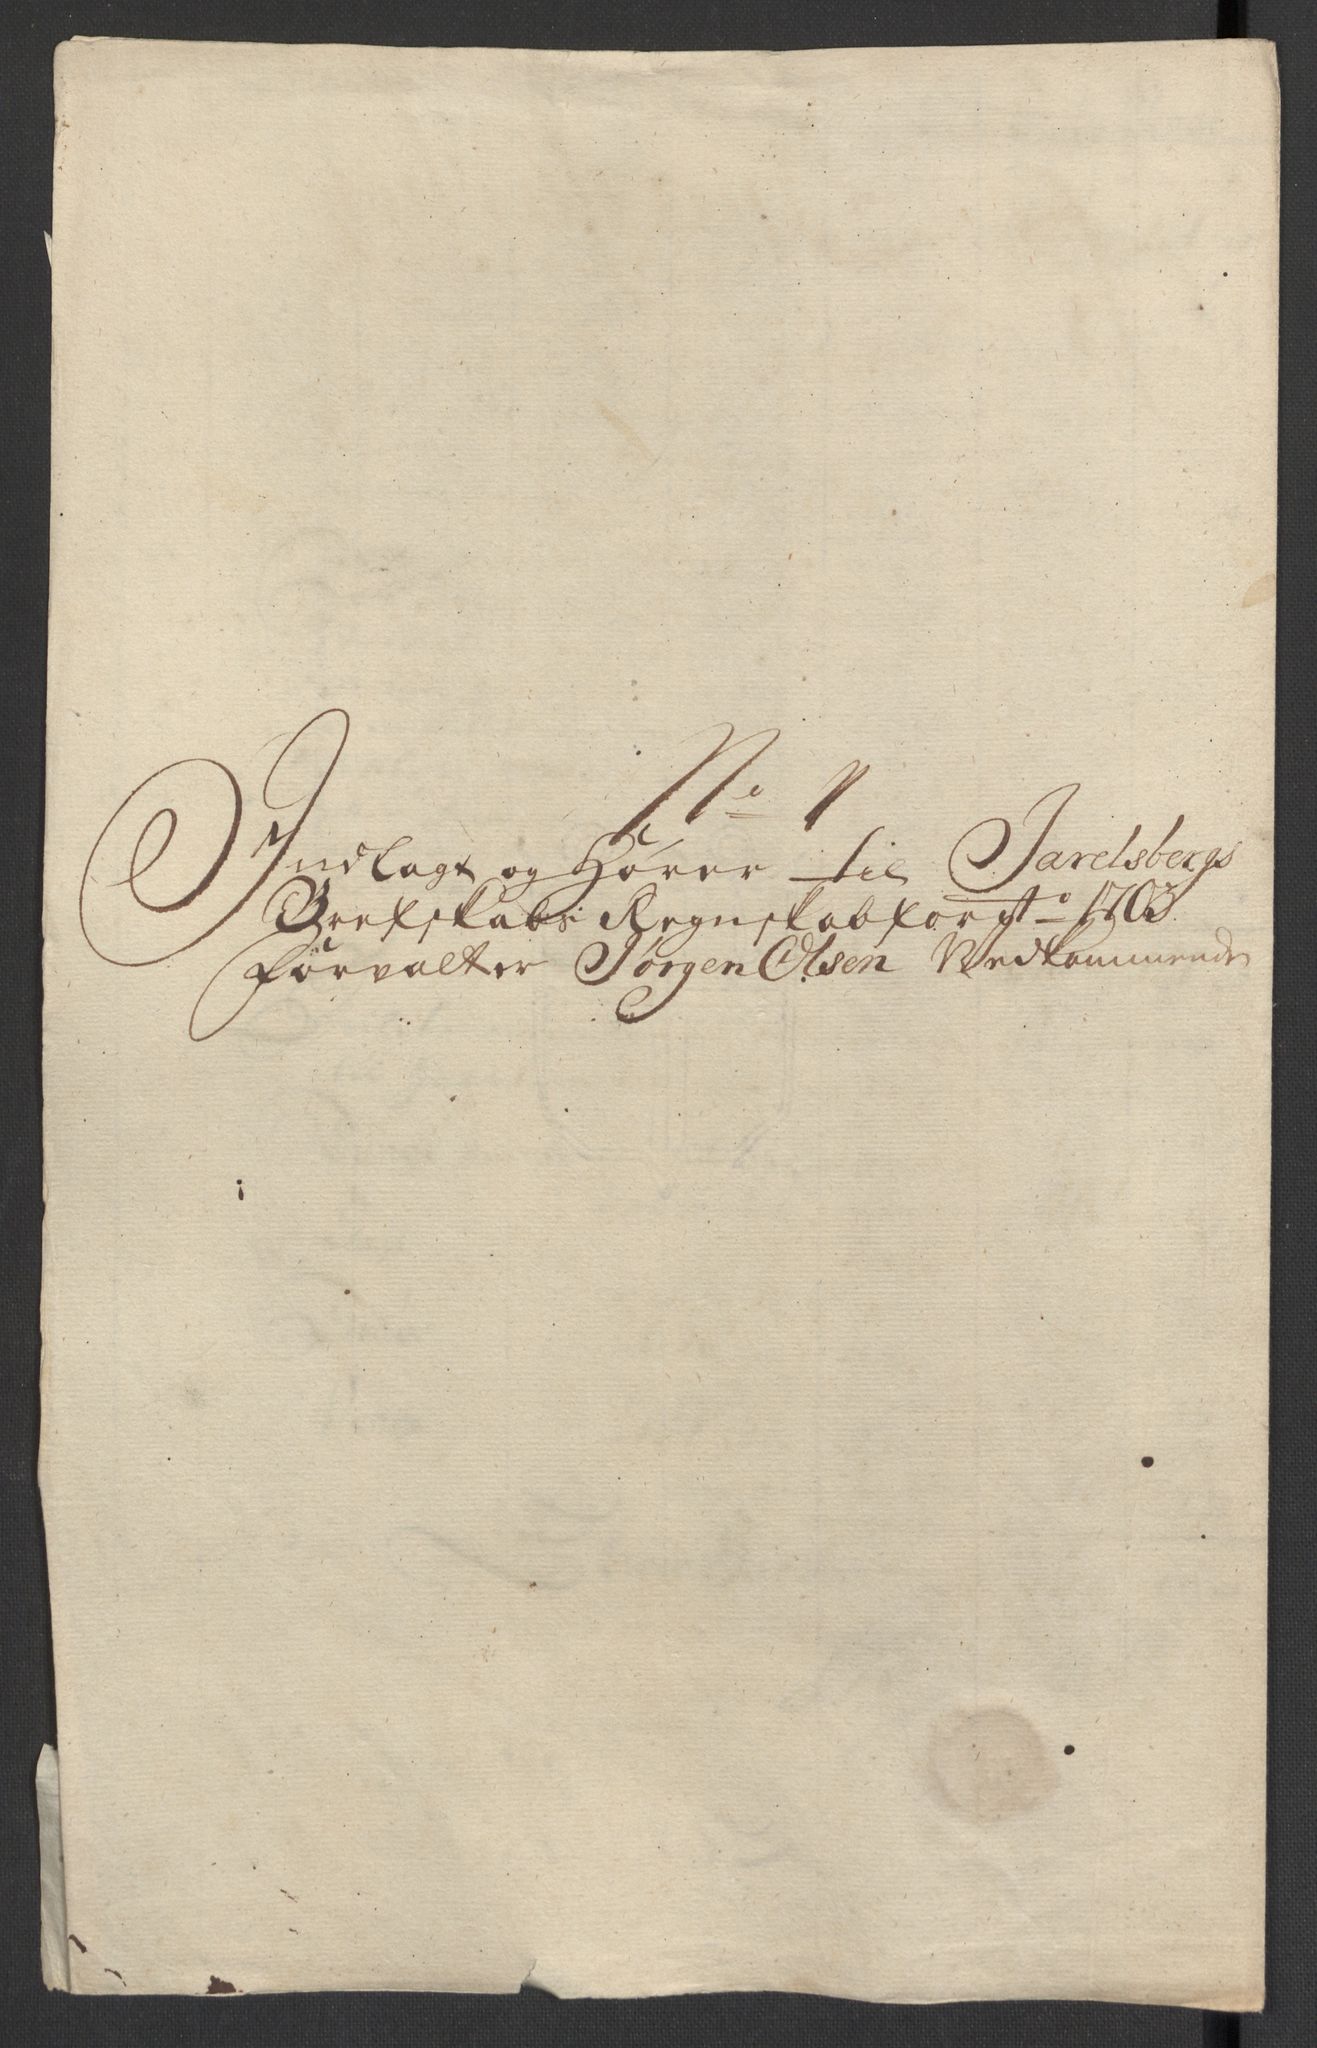 No 1
Indlagt og Hörer til Jarelsbergs
Grefskabs Regnskab for Ao 1703
Forvalter Jörgen Olsen Vedkommende